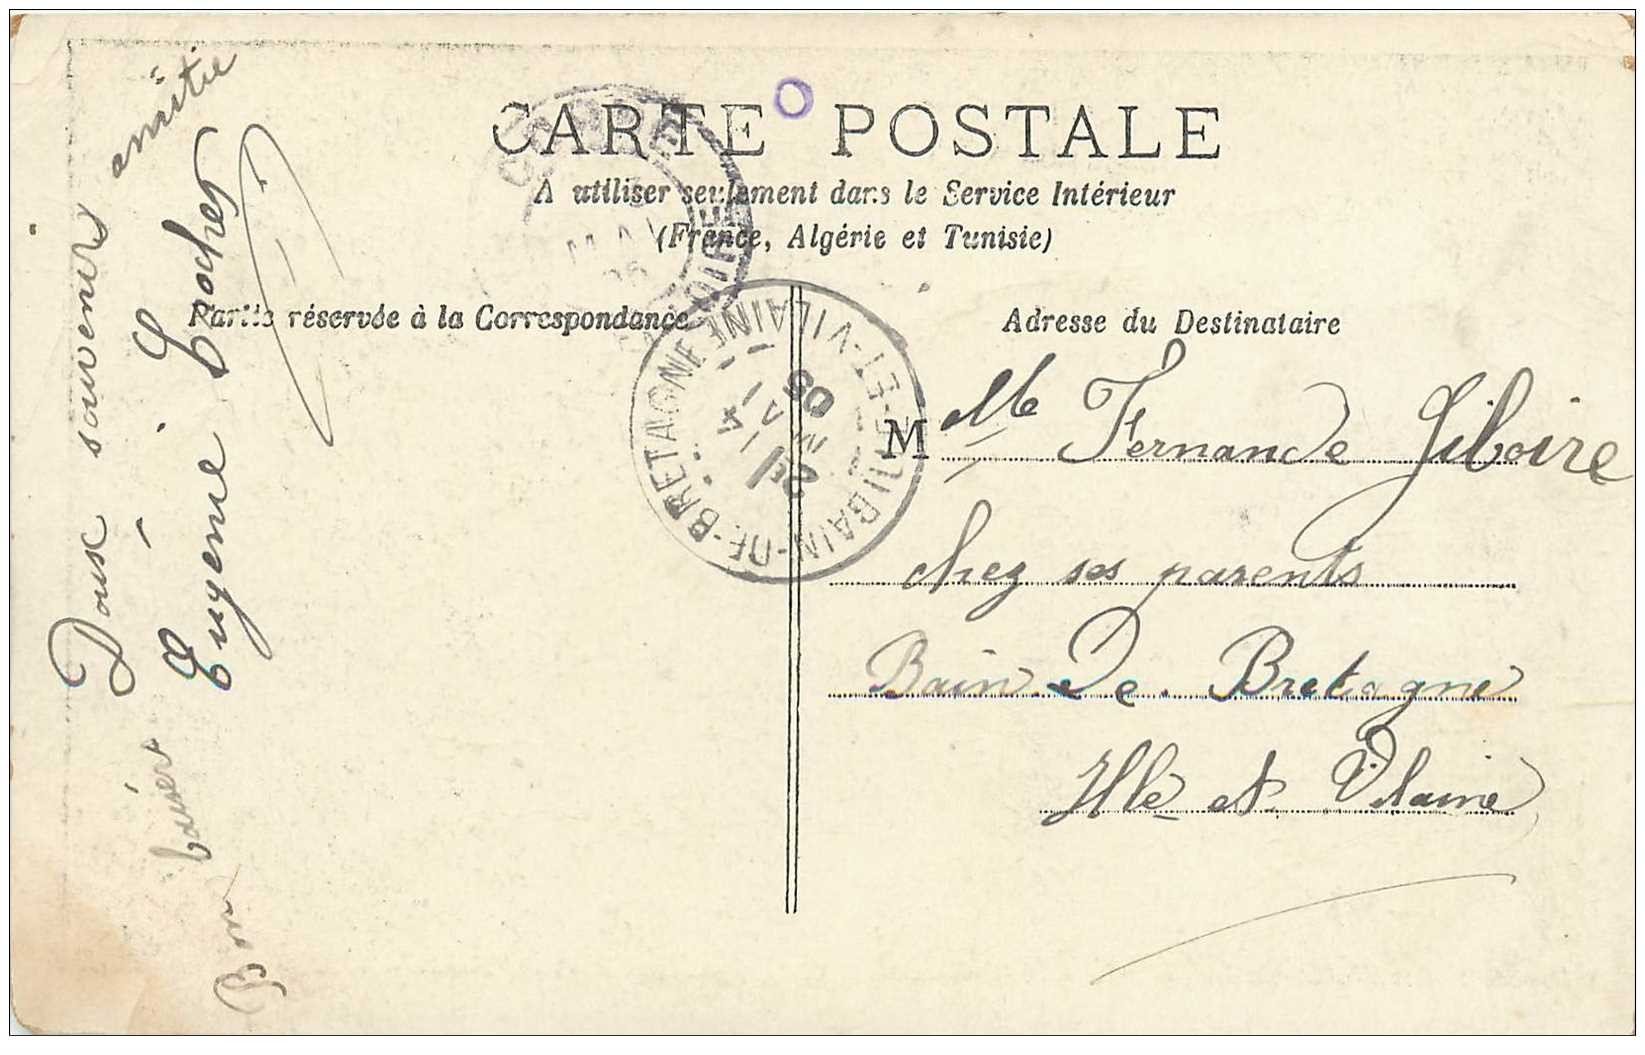 CARTE POSTALE
A utiliser seulement dans le Service Intérieur
(France, Algérie et Tunisie)
Partie réservée à la Correspondance
Adresse du Destinataire
M Mlle Fernande Giboire
chez ses parents
Bain de Bretagne
Ille et Vilaine
Doux souvenirs
amitié
Bon baiser
Eugénie
BAIN-DE-BRETAGNE
ILLE-ET-VILAINE
MAI